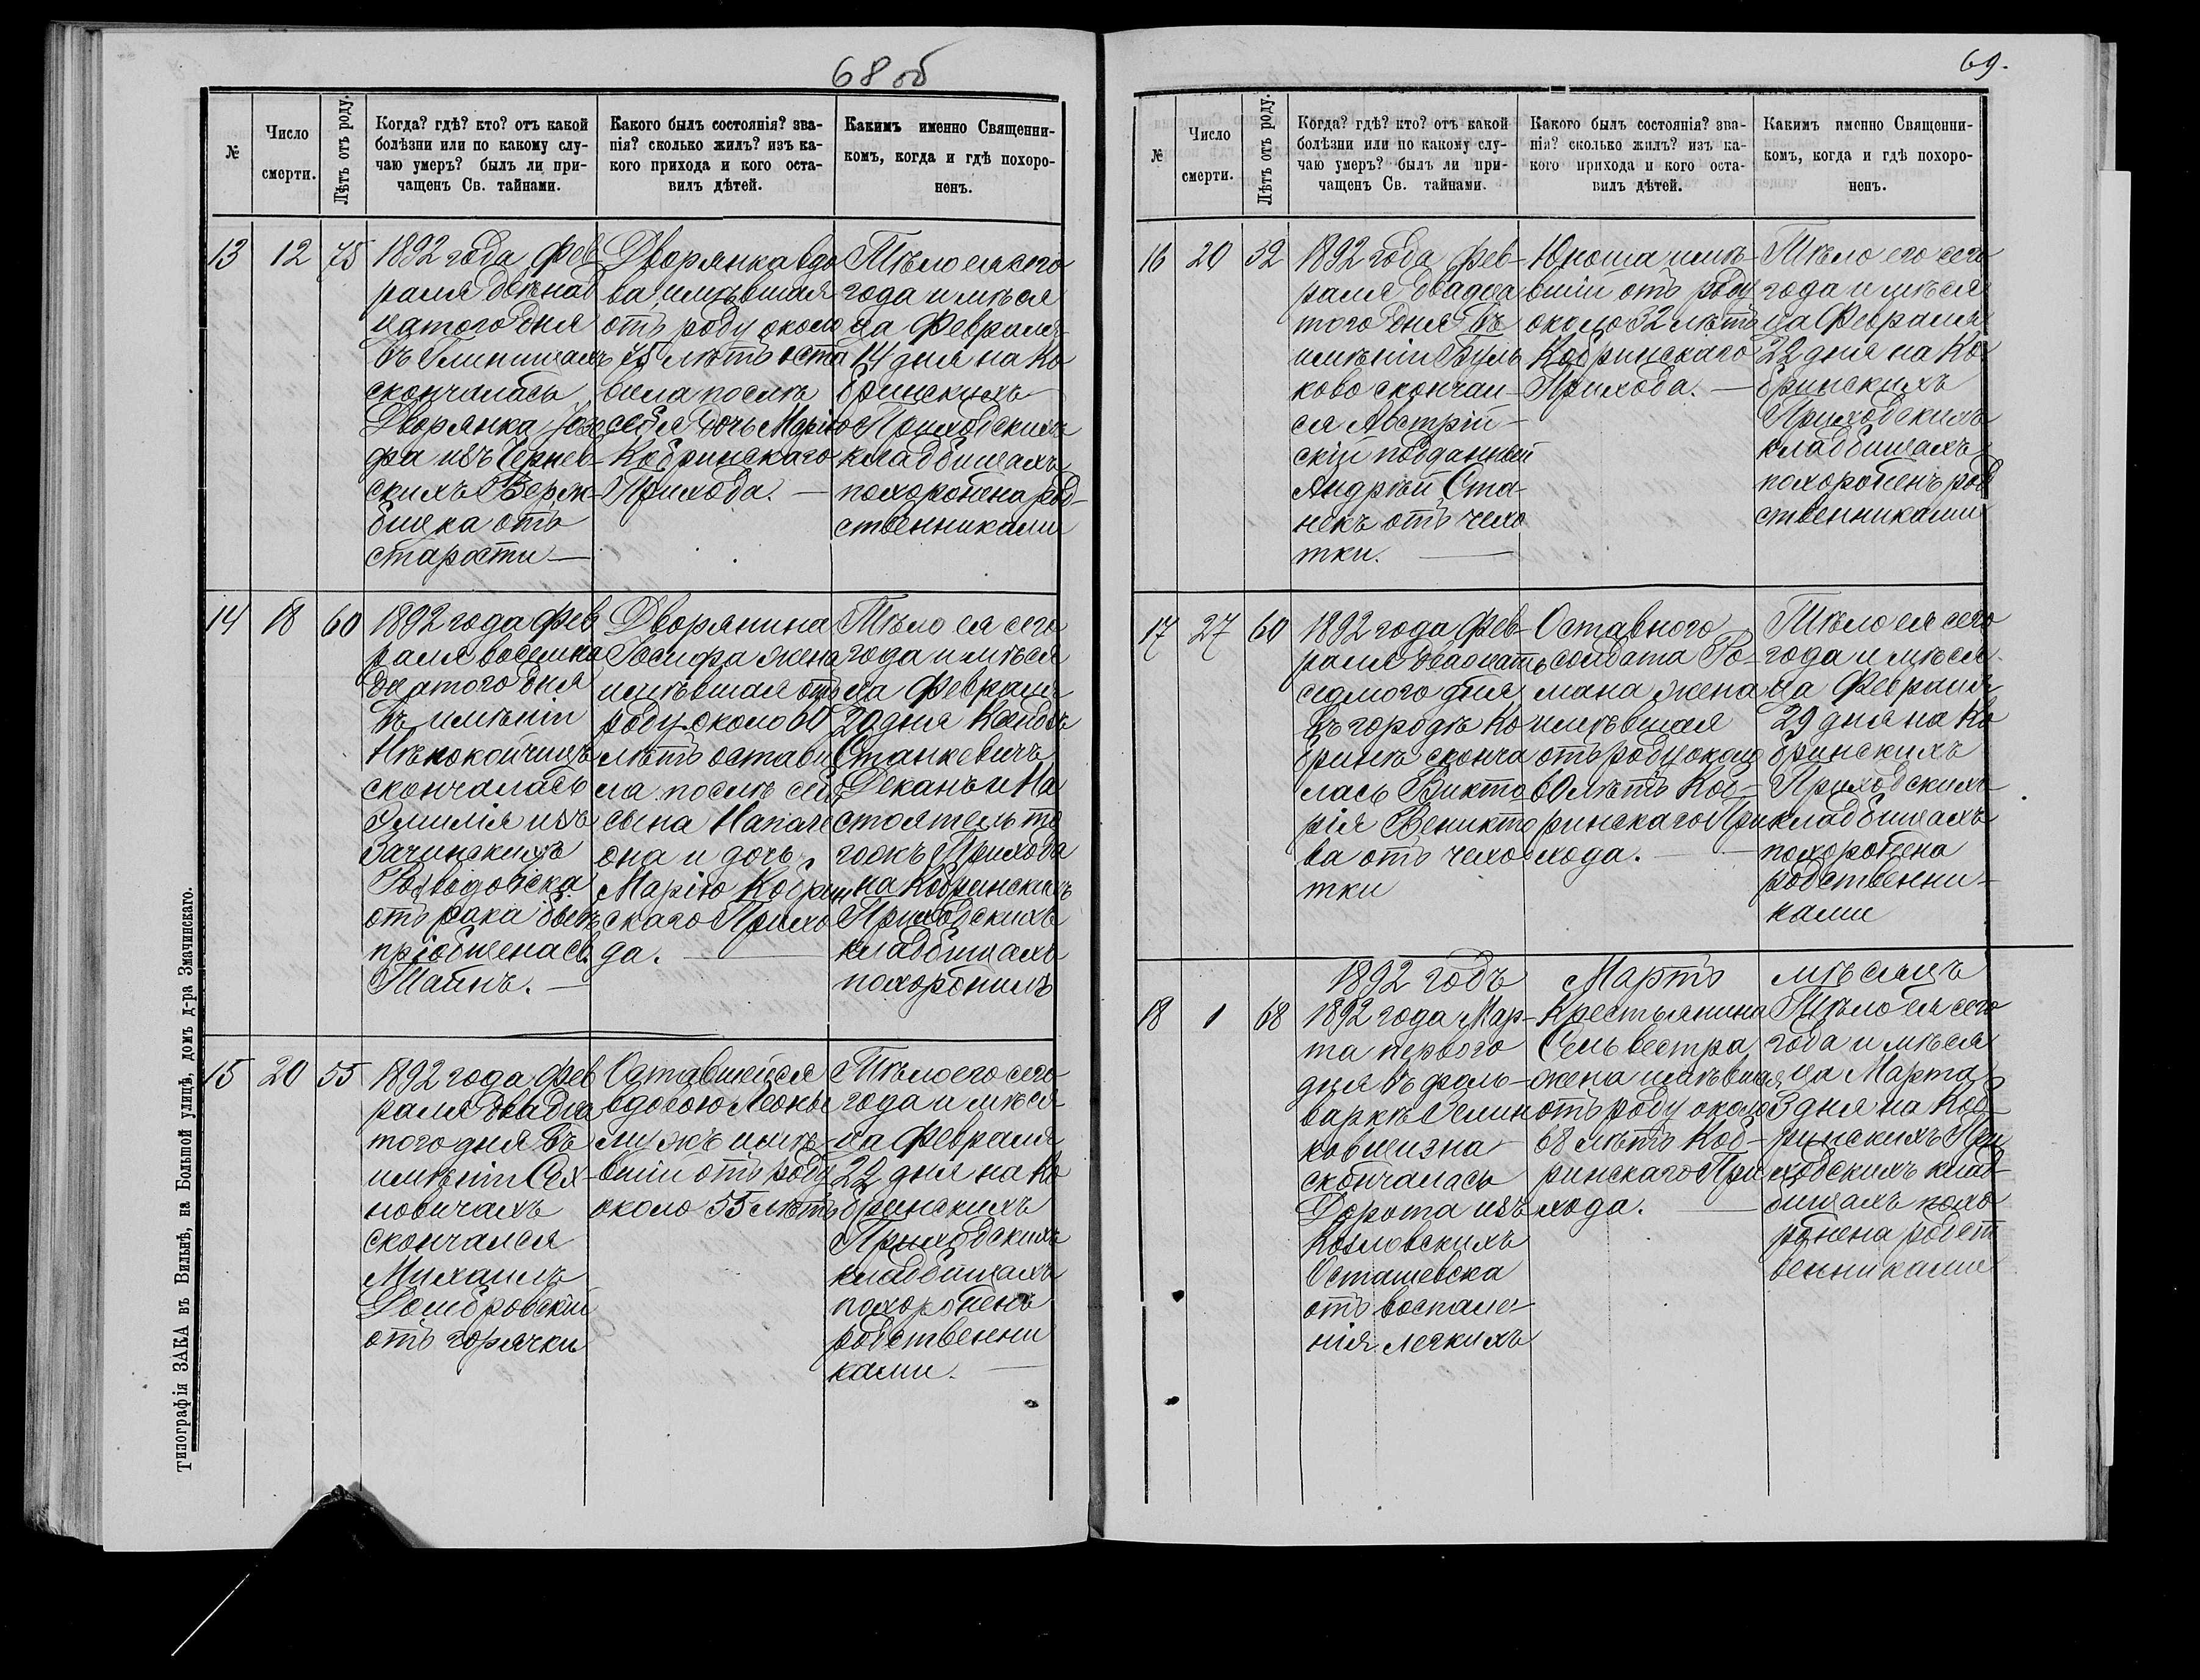 68 об
№
Число
смерти.
Лѣтъ отъ роду.
Когда? гдѣ? кто? отъ какой
болѣзни или по какому слу-
чаю умеръ? былъ ли при-
чащенъ Св. тайнами.
Какого былъ состоянія? зва-
нія? сколько жилъ? изъ ка-
кого прихода и кого оста-
вилъ дѣтей.
Какимъ именно Священни-
комъ, когда и гдѣ похоро-
ненъ.
13
12
75
1892 года Фев-
раля двѣнад
цатого дня
въ
скончалась
Дворянка Юзе
фа изъ Чернев-
скихъ
отъ
старости —
Дворянка вдо
ва, имѣвшая
отъ роду около
75 лѣтъ оста
вила послѣ
себя дочь Марію
Кобринскаго
Прихода. —
Тѣло ея сего
года и мѣся
ца Февраля
14 дня на Ко
бринскихъ
Приходскихъ
кладбищахъ
похоронена род-
ственниками
14
18
60
1892 года Фев
раля восемна
дцатого дня
въ имѣніи
скончалась
Эмилія изъ
отъ рака бывъ
пріобщена Св.
Таинъ. —
Дворянина
Іосифа жена
имѣвшая отъ
роду около 60
лѣтъ остави
ла послѣ себя
сына
она и дочь
Марію Кобрин
скаго Прихо
да. —
Тѣло ея сего
года и мѣся
ца Февраля
20 дня Ксендзъ
Станкевичъ
Деканъ и На
стоятель то
гожъ Прихода
на Кобринскихъ
Приходскихъ
кладбищахъ
похоронилъ
15
20
55
1892 года Фев
раля двадца
того дня въ
имѣніи Сех-
новичахъ
скончался
Михаилъ
Домбровскій
отъ горячки
Оставшейся
вдовою Леоны
мужъ имѣ-
вшій отъ роду
около 55 лѣтъ
Тѣло его сего
года и мѣся
ца Февраля
22 дня на Ко
бринскихъ
Приходскихъ
кладбищахъ
похороненъ
родственни
ками. —
Типографія ЗАКА въ Вильнѣ, на Большой улицѣ, домъ д-ра Змачинскаго.
69.
№
Число
смерти.
Лѣтъ отъ роду.
Когда? гдѣ? кто? отъ какой
болѣзни или по какому слу-
чаю умеръ? былъ ли при-
чащенъ Св. тайнами.
Какого былъ состоянія? зва-
нія? сколько жилъ? изъ ка-
кого прихода и кого оста-
вилъ дѣтей.
Какимъ именно Священни-
комъ, когда и гдѣ похоро-
ненъ.
16
20
32
1892 года Фев-
раля двадца
того дня въ
имѣніи Буль
ково скончал-
ся Австрій-
скій подданный
Андрѣй Ста-
некъ отъ чахо
тки. —
Юноша имѣ-
вшій отъ роду
около 32 лѣтъ
Кобринскаго
Прихода. —
Тѣло его сего
года и мѣся
ца Февраля
22 дня на Ко
бринскихъ
Приходскихъ
кладбищахъ
похороненъ род
ственниками
17
27
60
1892 года Фев-
раля двадцать
седмого дня
въ городѣ Ко
бринѣ сконча
лась Викто
рія
ва отъ чахо
тки
Оставного
солдата Ро-
мана жена
имѣвшая
отъ роду около
60 лѣтъ Коб-
ринскаго При
хода. —
Тѣло ея сего
года и мѣся
ца Февраля
29 дня на Ко
бринскихъ
Приходскихъ
кладбищахъ
похоронена
родственни-
ками
1892 годъ Мартъ мѣсяцъ
18
1
68
1892 года Мар-
та перваго
дня въ фоль-
варкѣ
скончалась
Дорота изъ
Козловскихъ
Осташевска
отъ воспале-
нія легкихъ
Крестьянина
Сельвестра
жена имѣвшая
отъ роду около
68 лѣтъ Коб-
ринскаго При
хода. —
Тѣло ея сего
года и мѣся
ца Марта
3 дня на Коб-
ринскихъ При
ходскихъ клад-
бищахъ похо
ронена родст
венниками